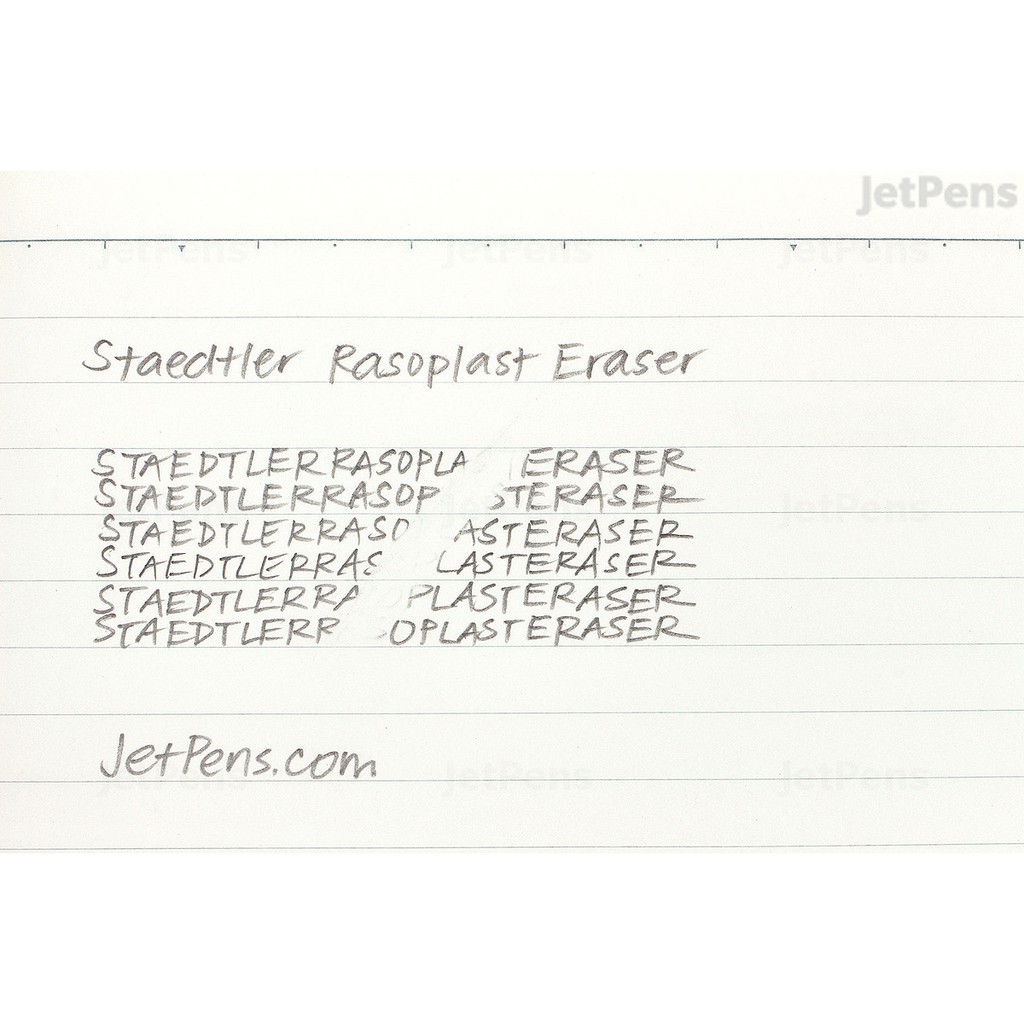 JetPens
JetPens JetPens JetPens
Staedtler Rasoplast Eraser
STAEDTLERRASOPLA ERASER
STAEDTLERRASOP STERASER
STAEDTLERRASO ASTERASER
STAEDTLERRAS LASTERASER
STAEDTLERRA PLASTERASER
STAEDTLERR OPLASTERASER
JetPens
JetPens.com
JetPens JetPens